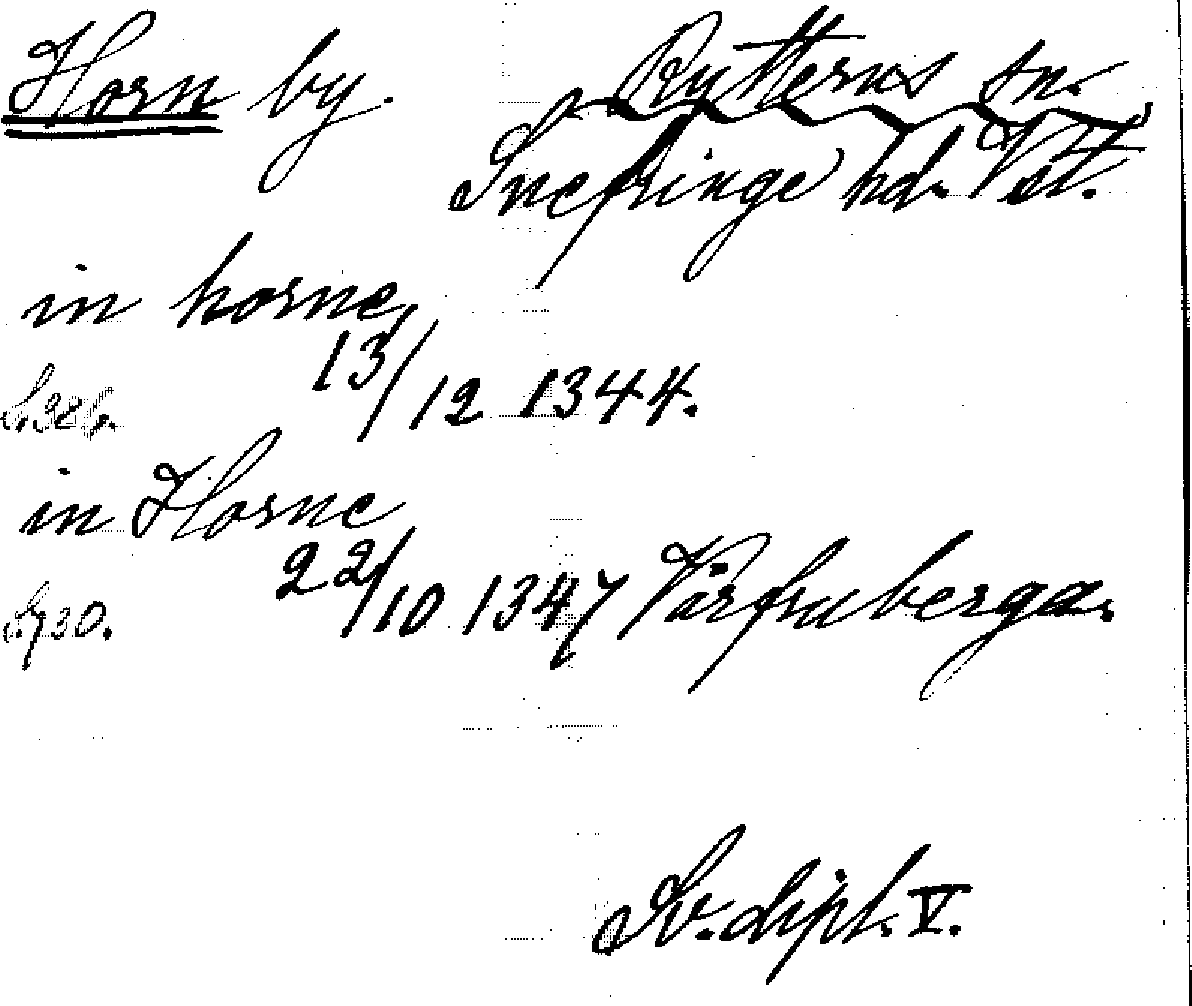 Horn by. Rytterns sn.
Snefringe hd. Vstt.
in horne,
13/12 1344.
S. 386.
in Horne
22/10 1347 Vårfruberga.
S. 730.
Sv. dipl. V.